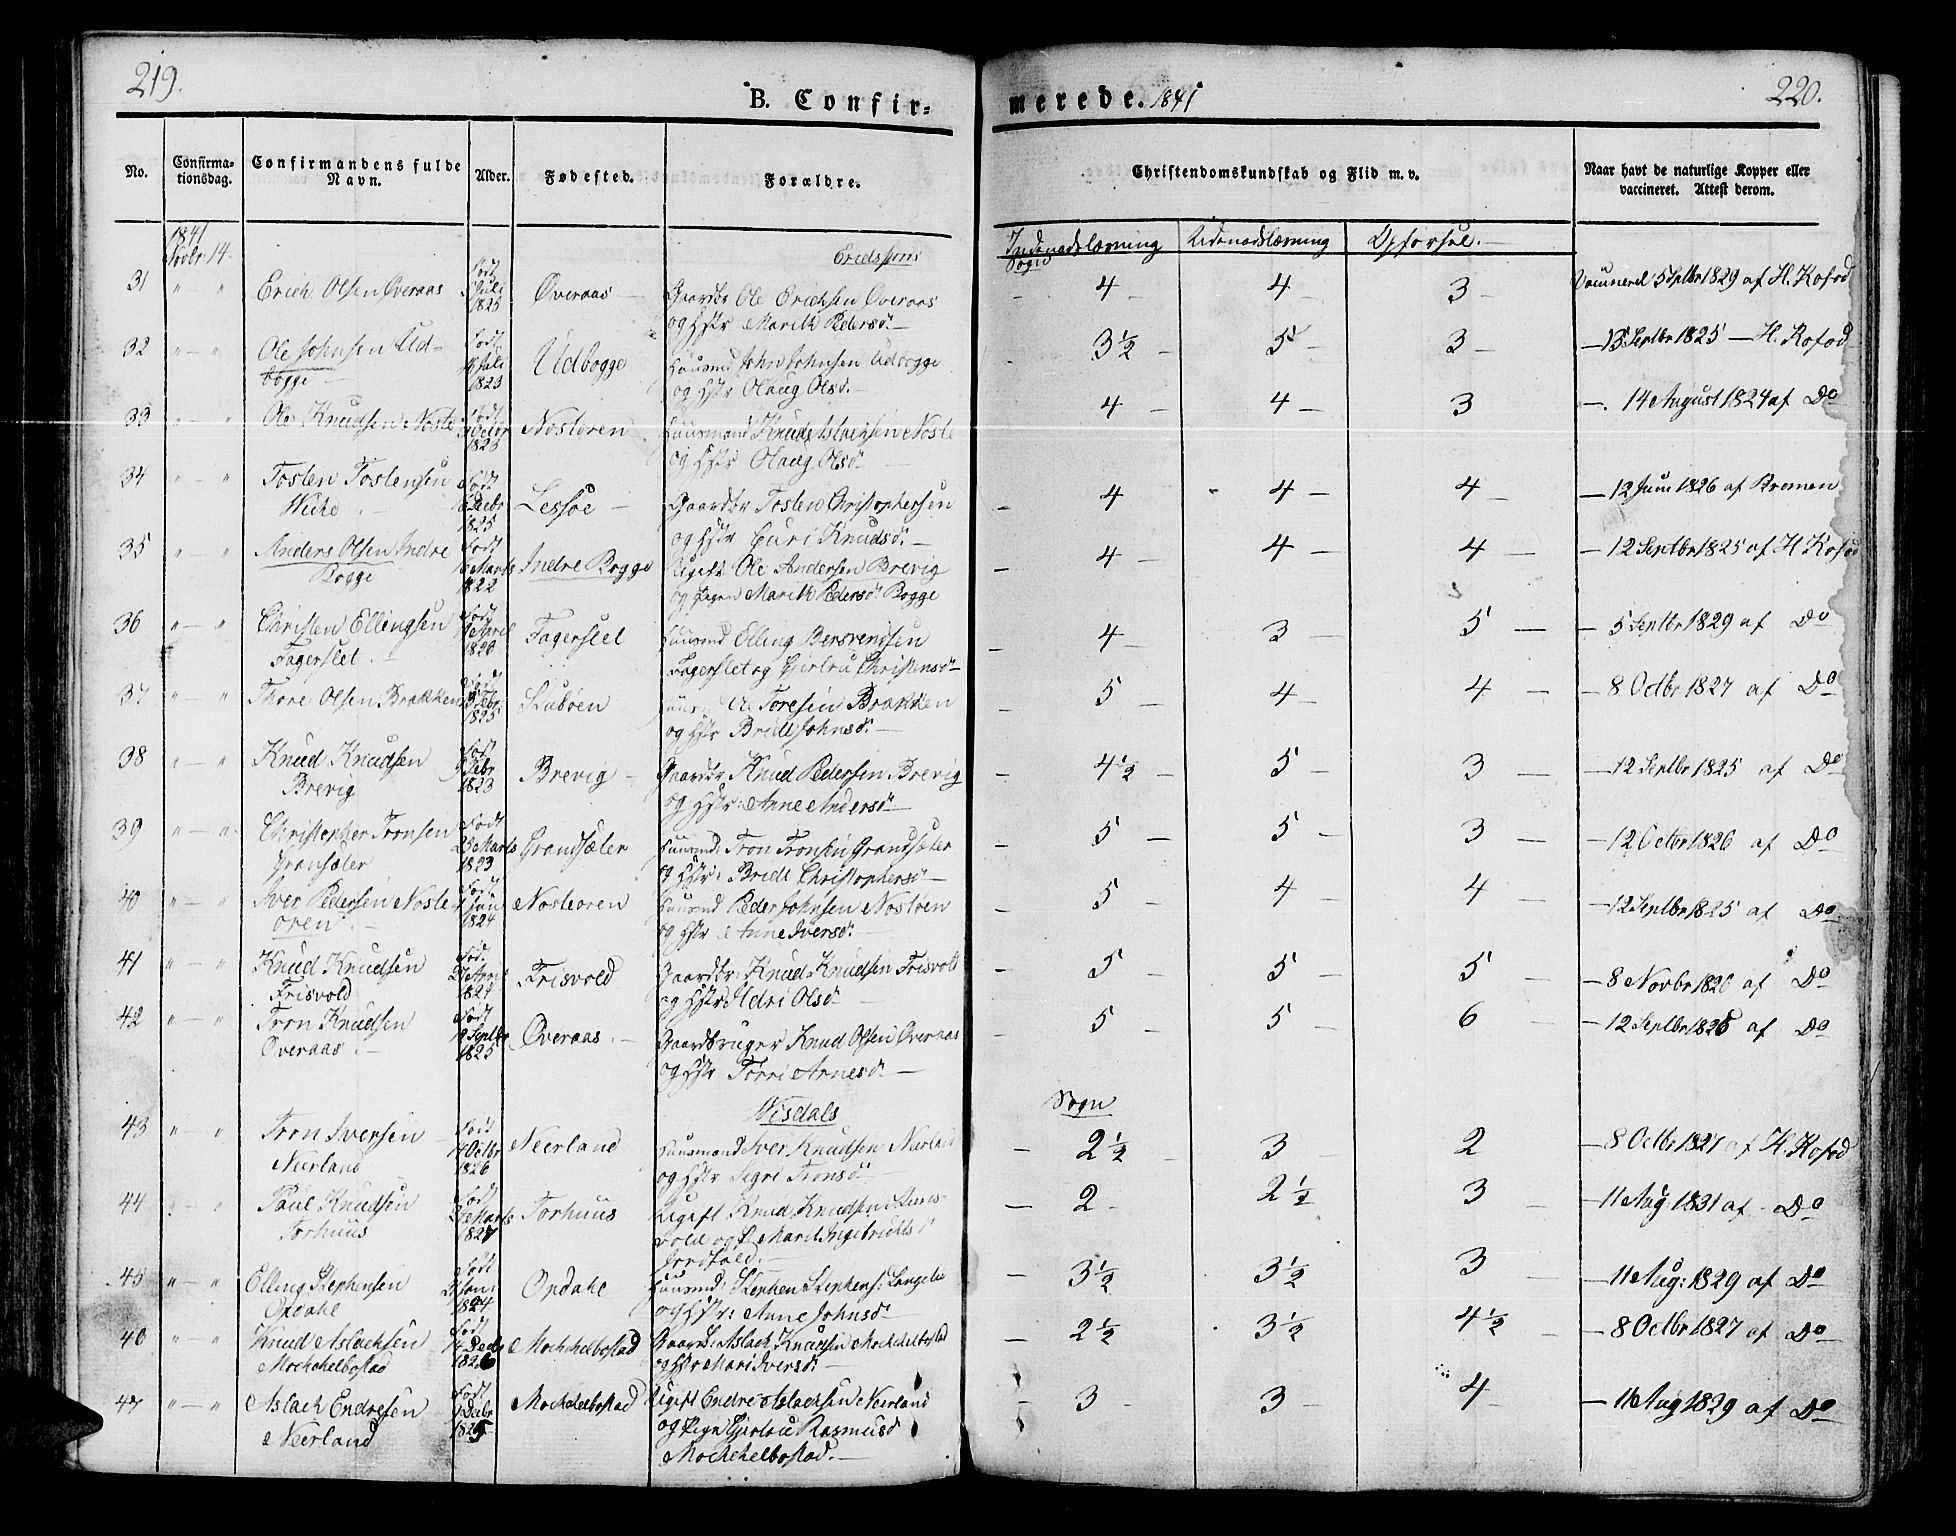 219.
B. Confir=
merede. 1841
220.
No.
Confirma-
tionsdag.
Confirmandens fulde
Navn.
Alder.
Fødested.
Forældre.
Christendomskundskab og Flid m. v.
Naar havt de naturlige Kopper eller
vaccineret. Attest derom.
1841
Novbr: 14
Eridsfjord
Sogn
Indenadslæsning
Udenadslæsning
Opførsel.
31 " — " Erich Olsen Øveraas Født Juli 1825 Øveraas Gaardbr Ole Erichsen Øveraas
og Hstr Marith Pedersd. 4 4 3 Vaccineret 5 Septbr 1829 af H. Kofod
32 " — " Ole Johnsen Ud-
bogge Født Juli 1823 Udbogge Huusmd John Johnsen Udbogge
og Hstr Olaug Olsd. 3½ 5 3 — 13 Septbr 1825 — H. Kofod
33 " — " Ole Knudsen Noste Født Octbr 1823 Nosteøren Huusmand Knud Aslachsen Noste
og Hstr Olaug Olsd. 4 4 3 — 14 August 1824 af Do
34 " — " Tosten Tostensen
Født Decbr 1825 Lessøe Gaardbr Tosten Christophersen
og Hstr Guri Knudsd. 4 4 4 — 12 Juni 1826 af Bremen
35 " — " Anders Olsen Indre
Bogge Født Marts 1822 Indre Bogge Ugift Ole Andersen Brevig
og Pigen Marith Pedersd. Bogge 4 4 4 — 12 Septbr 1825 af H. Kofod
36 " — " Christen Ellingsen
Fagerslet Født 1826 Fagerslet Huusmd Elling Bersvensen
Fagerslet og Gjertru Christensd. 4 3 5 — 5 Septbr 1829 af Do
37 " — " Thore Olsen Brakken Født Febr. 1825 Stubøen Huusm Ole Toresen Brakken
og Hstr Bridt Johnsd. 5 4 4 — 8 Octbr 1827 af Do
38 " — " Knud Knudsen
Brevig Født Febr 1823 Brevig Gaardbr Knud Pedersen Brevig
og Hstr: Anne Andersd. 4½ 5 3 — 12 Septbr 1825 af Do
39 " — " Christopher Tronsen
Gransæter Født 25 Marts 1823 Grandsæter Huusmd: Tron Tronsen Grandsæter
og Hstr: Bridt Christophersd. 5 5 3 — 12 Octbr 1826 af Do
40 " — " Iver Pedersen Noste
øren Født Juni 1824 Nosteøren Huusmd Peder Johnsen Nostøen
og Hstr Anne Iversd. 5 4 4 — 12 Septbr 1825 af Do
41 " — " Knud Knudsen
Frisvold Født 27 April 1824 Frisvold Gaardbr: Knud Knudsen Frisvold
og Hstr Olsd. 5 5 5 — 8 Novbr 1826 af Do
42 " — " Tron Knudsen
Øveraas Født 19 Septbr 1825 Øveraas Gaardbruger Knud Olsen Øveraas
og Hstr Torri Arnesd. 5 5 6 — 12 Septbr 1826 af Do
Visdals
Sogn
43 " — " Tron Iversen
Neerland Født 14 Octbr 1826 Neerland Huusmand Iver Knudsen Neerland
og Hstr Sigri Tronsd. 2½ 3 2 — 8 Octbr 1827 af H. Kofod
44 " — " Paul Knudsen
Torhuus Født Marts 1827 Torhuus Ugift Knud Knudsen
og P Marit Ingebrichtsd.
2 2½ 3 — 11 Aug 1831 af Do
45 " — " Elling Stephensen
Opdahl Født Jan: 1824 Opdahl Huusmd: Stephen Stephens:
og Hstr: Anne Johnsd. 3½ 3½ 3 — 11 Aug: 1829 af Do
46 " — " Knud Aslachsen
Mochelbostad Født 14 Decbr 1826 Mochelbostad Gaardb: Aslach Knudsen Mochelbostad
og Hstr Mari Iversd: 2½ 3½ 4½ — 8 Octbr 1827 af Do
47 " — " Aslach Endresen
Neerland Født 9 Decbr 1825 Mochelbostad Ugift Endre Aslachsen Neerland
og Pigen Gjertru Rasmusd
Mochelbostad. 3 3 4 — 16 Aug 1829 af Do